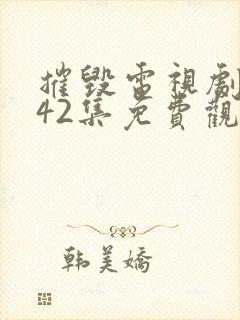 摧毀電視劇
42集免費觀
韩美嬌